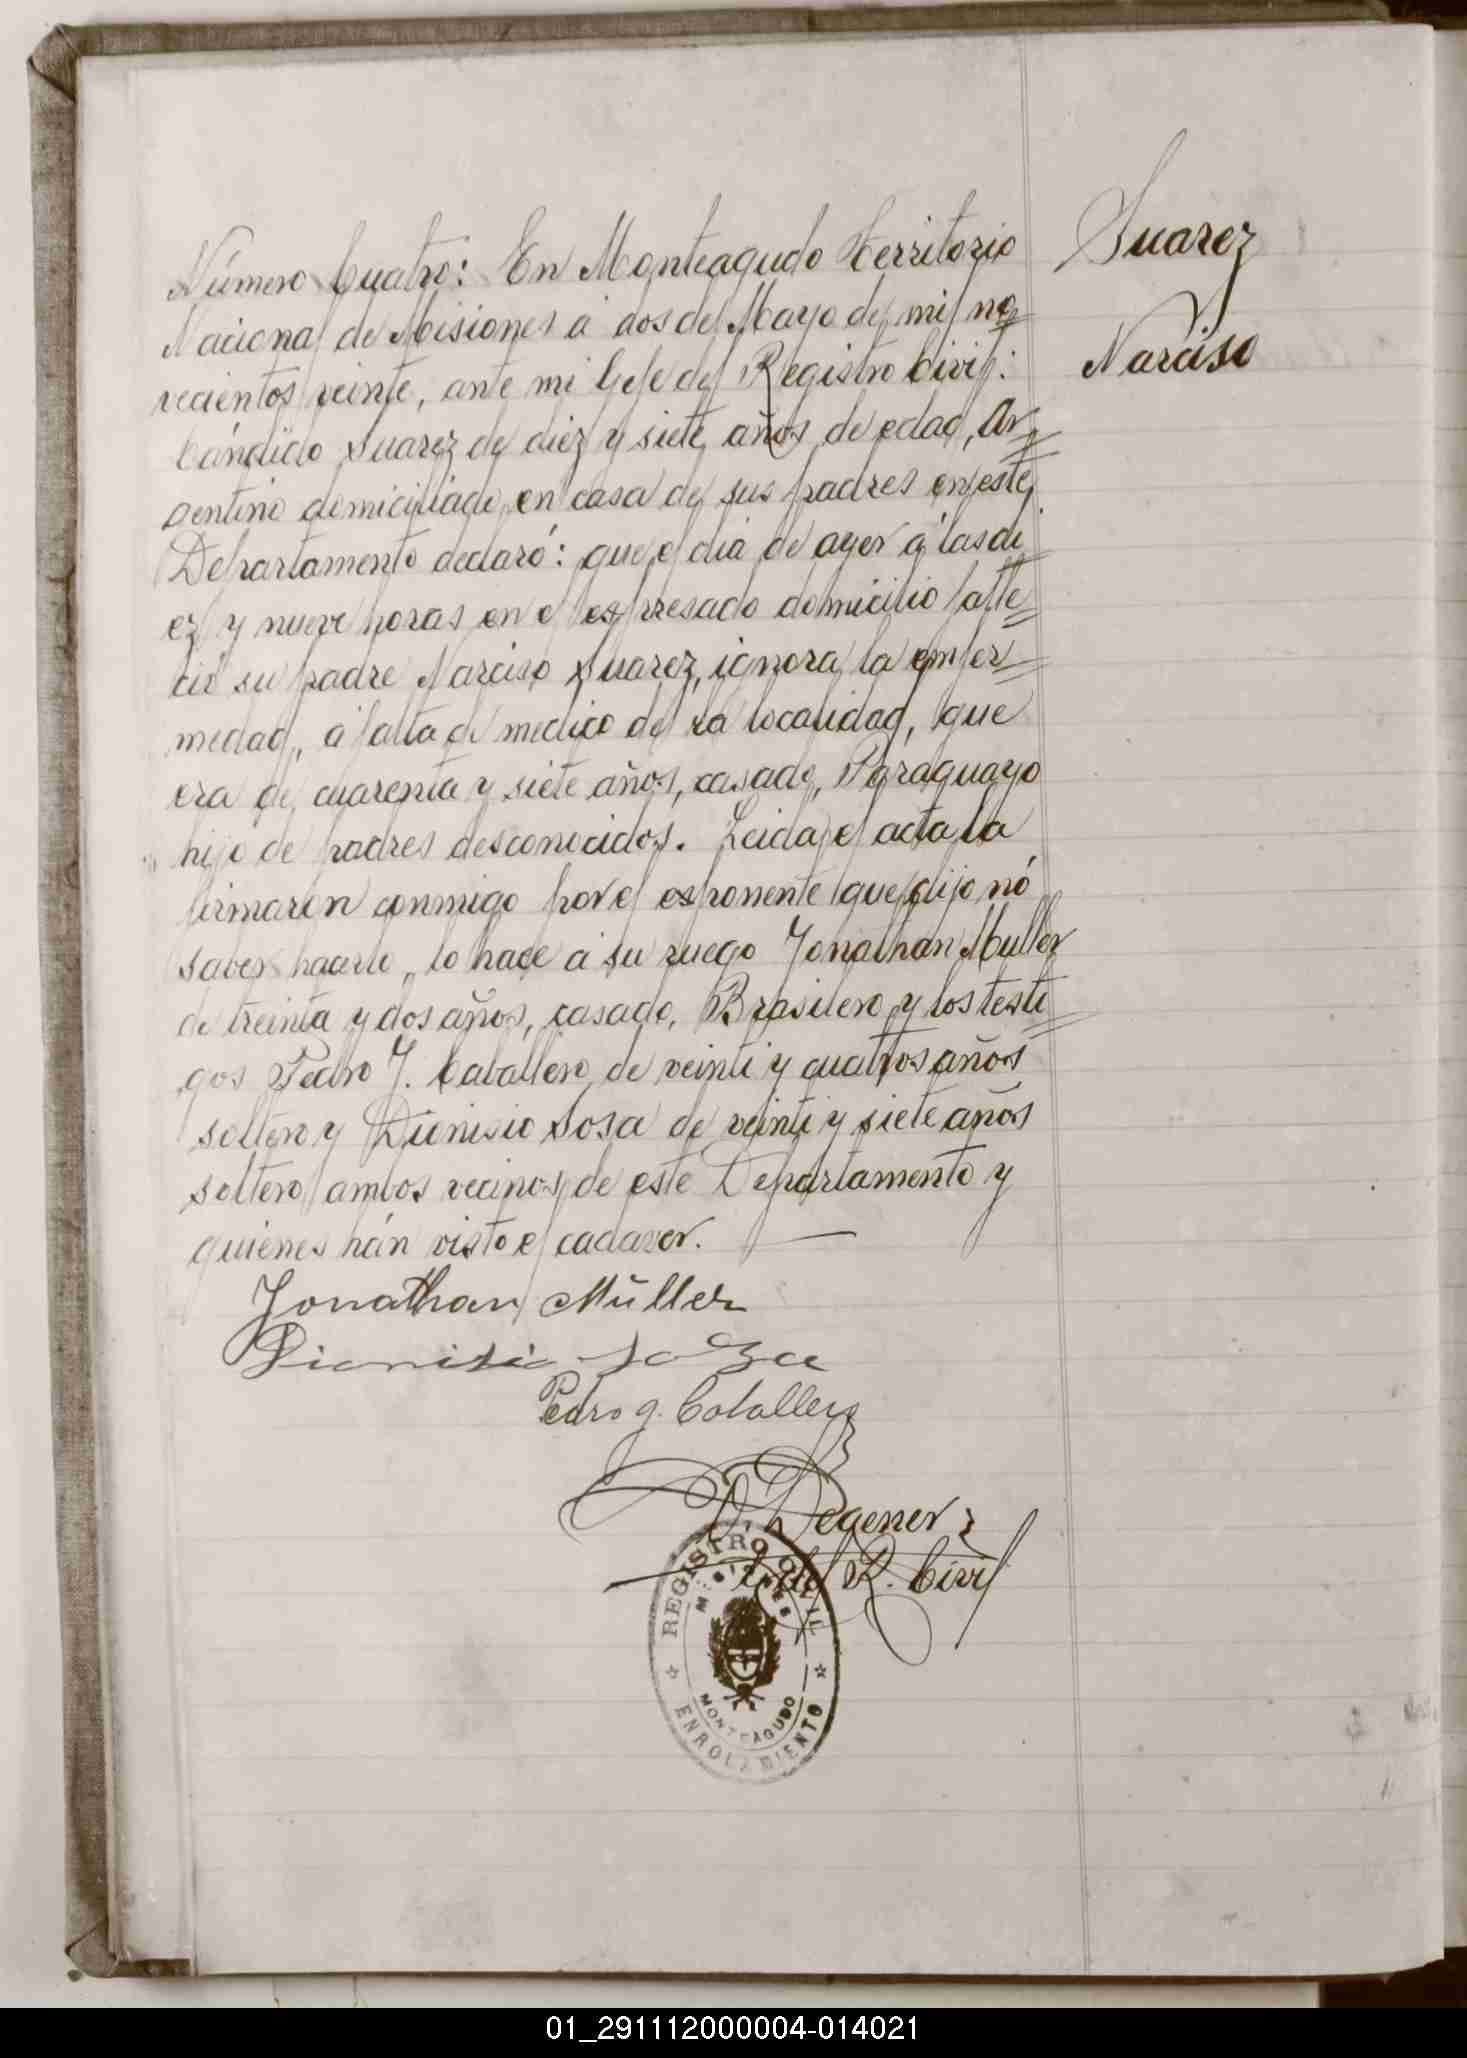 Suarez
Narciso
Número Cuatro: En Monteagudo Territorio
Nacional de Misiones á dos de Mayo de mil no
vecientos veinte, ante mi Gefe del Registro Civil:
Cándido Suarez de diez y siete años de edad, Ar
gentino domiciliado en casa de sus padres en este
Departamento declaró: que el dia de ayer á las di
ez y nueve horas en el espresado domicilio falle
ció su padre Narciso Suarez, ignora la enfer
medad, á falta de medico de la localidad, que
era de cuarenta y siete años, casado, Paraguayo
hijo de padres desconocidos. Leida el acta la
firmaron conmigo por el esponente que dijo nó
saber hacerlo, lo hace á su ruego Jonathan Muller
de treinta y dos años, casado, Brasilero y los testi
gos Pedro J. Caballero de veinti y cuatros años
soltero y Dionisio Sosa de veinti y siete años
soltero ambos vecinos de este Departamento y
quienes hán visto el cadaver.
Jonathan Müller
Dionisio Soza
Pedro J. Caballero
Degener
R. Civil
REGISTRO CIVIL
MISIONES
MONTEAGUDO
ENROLAMIENTO
01_291112000004-014021